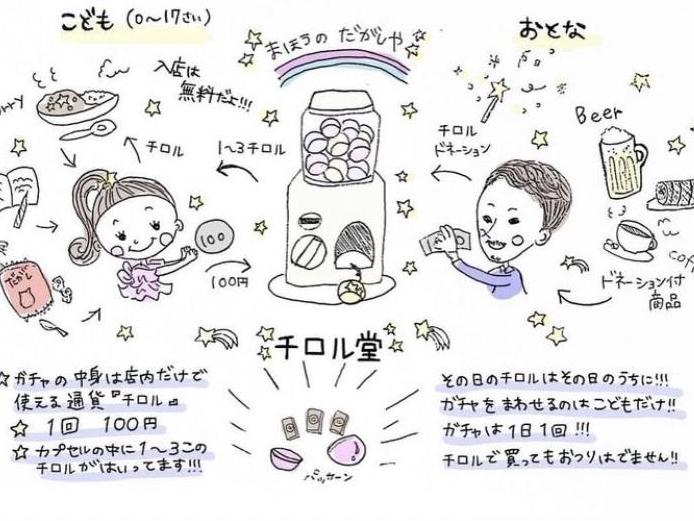 こども（0〜17さい）
まほうの だがしや
おとな
入店は
無料だよ!!!
チロル
1〜3チロル
チロル
ドネーション
Beer
100
100円
だがし
ドネーション付
商品
チロル堂
☆ガチャの中身は店内だけで
使える通貨『チロル』
☆ 1回 100円
☆カプセルの中に1〜3この
チロルがはいってます!!!
パッカーン
その日のチロルはその日のうちに!!!
ガチャをまわせるのはこどもだけ!!
ガチャは1日1回!!!
チロルで買ってもおつりはでません!!